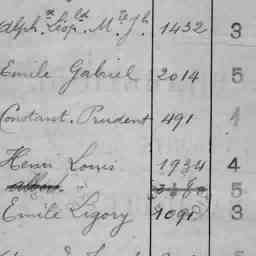 Alph. Liop. M. Jh 1432 3
Emile Gabriel 2014 5
Constant. Prudent 491 1
Henri Louis 1934 4
5
Emile Ligory 1091 3